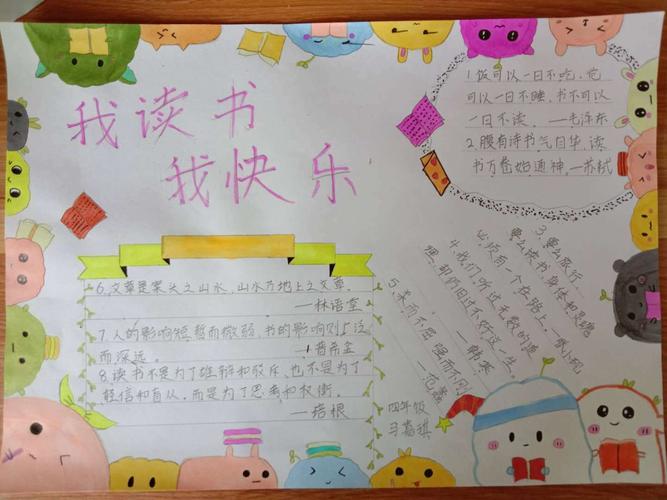 我读书
我快乐
1.饭可以一日不吃,觉
可以一日不睡,书不可以
一日不读。 —毛泽东
2.腹有诗书气自华,读
书万卷始通神。—苏轼
3.要么旅行、
要么读书,身体和灵魂
必须有一个在路上。—张小砚
4.我们听过无数的道
理,却仍旧过不好这一生。
—韩寒
5.柔而不屈,强而不刚
—范蠡
6.文章是案头之山水,山水乃地上之文章。
—林语堂
7.人的影响短暂而微弱,书的影响则广泛
而深远。 —普希金
8.读书不是为了雄辩和驳斥,也不是为了
轻信和盲从,而是为了思考和权衡。
—培根
四年级
马嘉琪